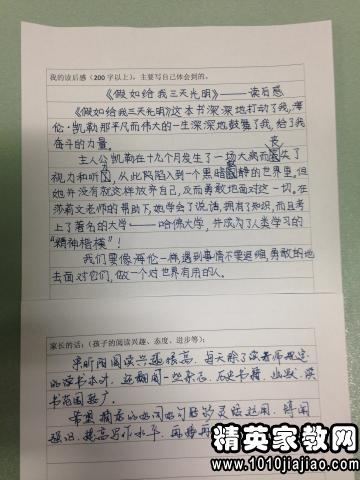 我的读后感(200字以上),主要写自己体会到的。
《假如给我三天光明》——读后感
《假如给我三天光明》这本书深深地打动了我,海
伦·凯勒那平凡而伟大的一生深深地鼓舞了我,给了我
奋斗的力量。
主人公凯勒在十九个月发生了一场大病而丧失了
视力和听,从此陷入到一个黑暗静的世界里,但
她并没有就这样放弃自己,反而勇敢地面对这一切,在
莎莉文老师的帮助下,她学会了说话,拥有了知识,而且考
上了著名的大学——哈佛大学,并成为了人类学习的
“精神楷模”!
我们要像海伦一样,遇到事情不要退缩,勇敢的地
去面对它们,做一个对世界有用的人。
家长的话:(孩子的阅读兴趣、态度、进步等):
阅读兴趣很高,每天除了读老师规定
的读书本外,还翻阅一些杂志、历史书籍、幽默,读
书范围广。
希望摘录的好词好句能够灵活运用,
提高写作水平,再
精英家教网
www.1010jiajiao.com